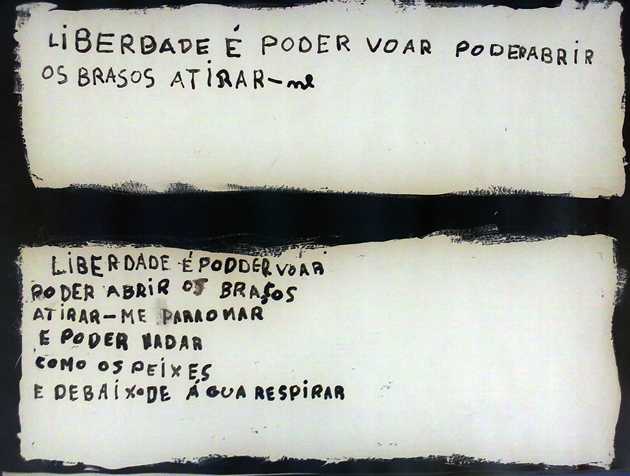 LIBERDADE É PODER VOAR PODERABRIR
OS BRASOS ATIRAR-me
LIBERDADE É PODDER VOAR
PODER ABRIR OS BRAÇOS
ATIRAR-ME PARROMAR
E PODER NADAR
COMO OS PEIXES
E DEBAIXODE ÁGUA RESPIRAR